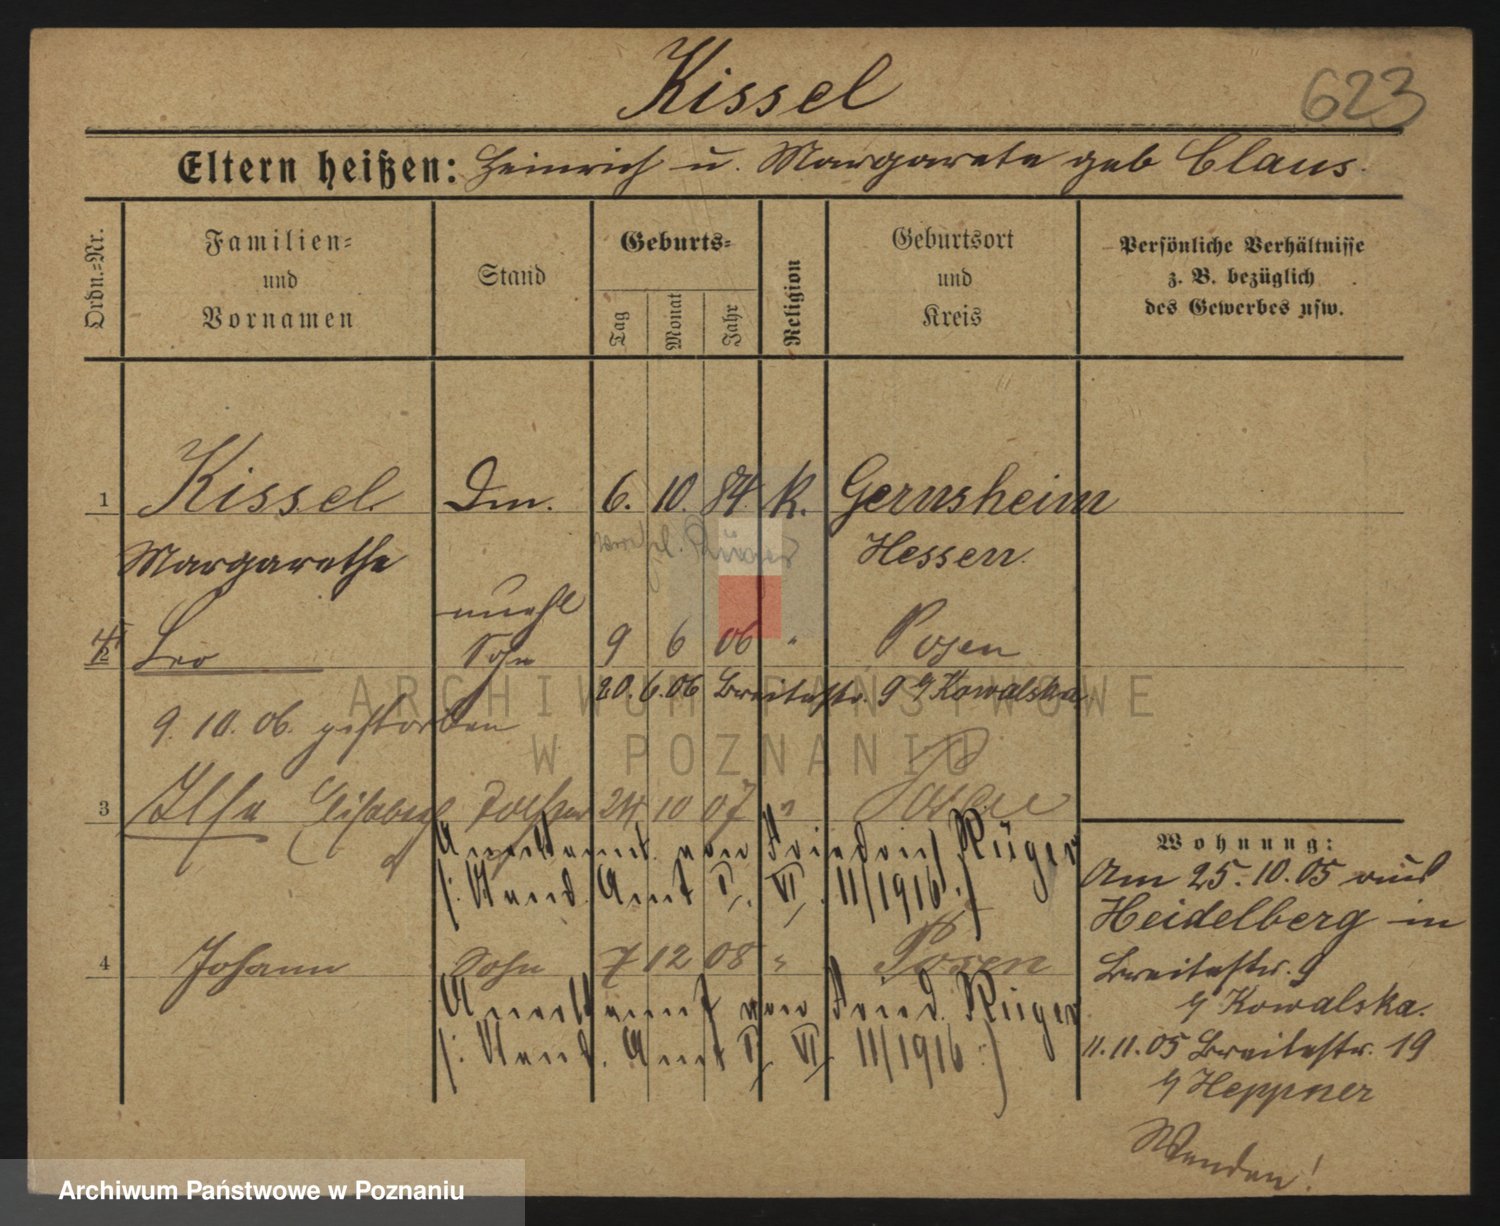 Kissel
623
Eltern heißen: Heinrich u. Margarete geb Claus.
Ordn.=Nr.
Familien=
und
Vornamen
Stand
Geburts=
Tag
Monat
Jahr
Religion
Geburtsort
und
Kreis
Persönliche Verhältnisse
z. B. bezüglich
des Gewerbes usw.
1 Kissel Dm. 6. 10. 84. K. Gernsheim
Margarethe Hessen.
Rüger
unehl
2 Leo Sohn 9 6 06 " Posen
20. 6. 06 Breitestr. 9 Kowalska
9. 10. 06. gestorben
3 Ilse Elisabeth Tochter 24 10 07 " Posen
Anerkannt von Friedrich Rüger
/: Stand. Amt I. VI. 11/1916 :/
4 Johann Sohn 7 12 08 " Posen
Anerkannt von Fried. Rüger
/: Stand. Amt I. VI. 11/1916 :/
Wohnung:
Am 25.10.05 aus
Heidelberg in
Breitestr. 9
Kowalska.
11.11.05 Breitestr. 19
Heppner
Wenden!
ARCHIWUM PAŃSTWOWE
W POZNANIU
Archiwum Państwowe w Poznaniu